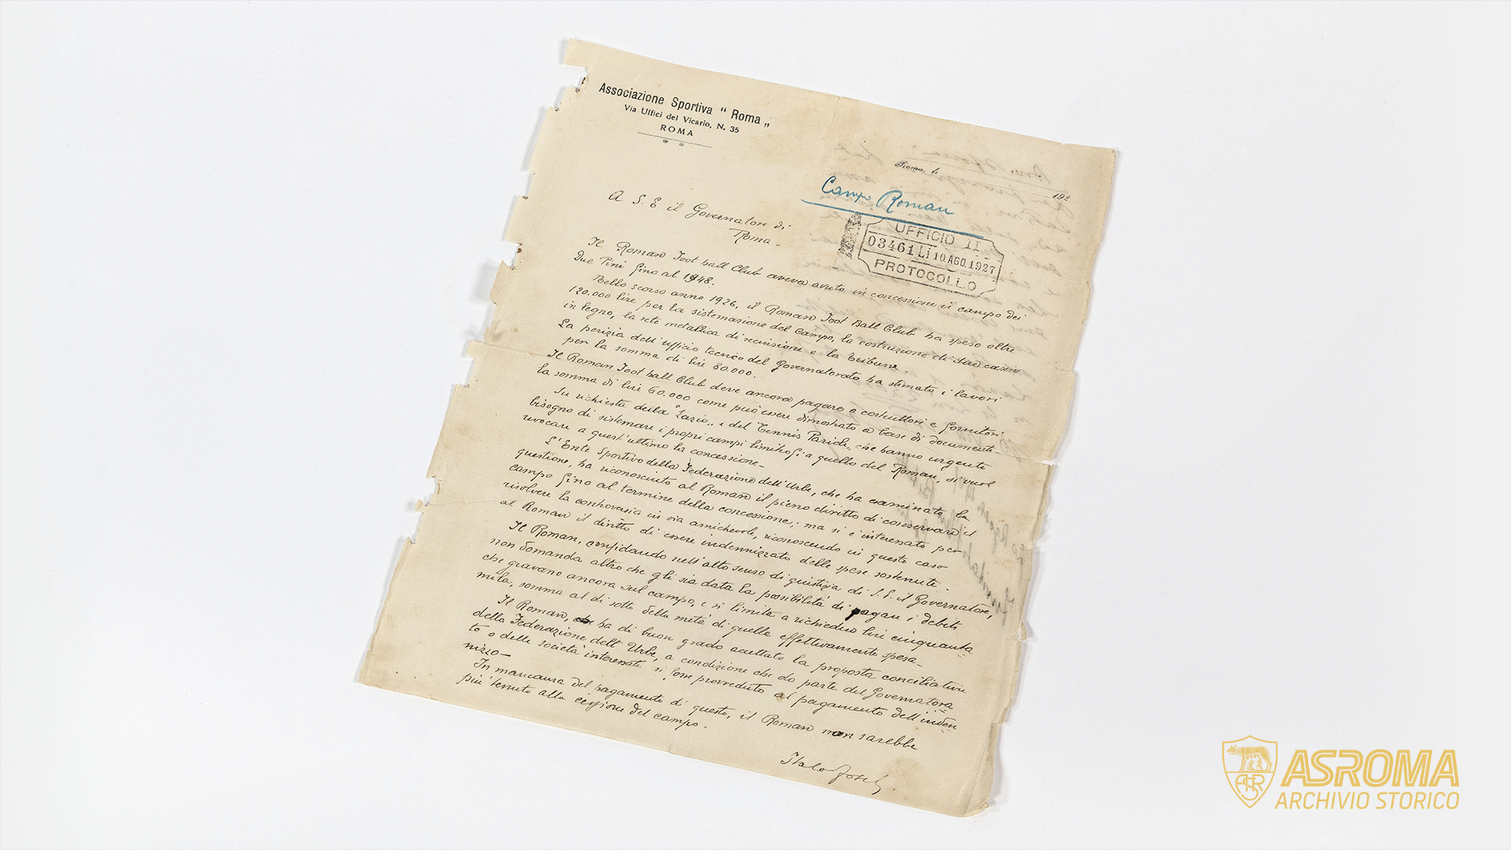 Associazione Sportiva " Roma „
Via Uffici del Vicario, N. 35
ROMA
Roma, li 192
Campo Roman
UFFICIO II
03461 LI 10 AGO.1927
PROTOCOLLO
A S. E il Governatore di
Roma -
Il Roman Foot ball Club aveva avuto in concessione il campo dei
Due Pini fino al 1948.
Nello scorso anno 1926, il Roman Foot Ball Club ha speso oltre
120.000 lire per la sistemazione del Campo, la costruzione di due casine
in legno, la rete metallica di recinsione e la tribuna.
La perizia dell'ufficio tecnico del Governatorato ha stimato i lavori
per la somma di lire 80.000.
Il Roman Foot ball Club deve ancora pagare a costruttori e fornitori
la somma di lire 60.000 come può essere dimostrato a base di documenti.
Su richiesta della "Lazio„ e del Tennis Parioli, che hanno urgente
bisogno di sistemare i propri campi limitrofi a quello del Roman, si vuol
revocare a quest'ultimo la concessione -
L'Ente Sportivo della Federazione dell'Urbe, che ha esaminato la
questione, ha riconosciuto al Roman il pieno diritto di conservare il
campo fino al termine della concessione; ma si è interessato per
risolvere la controversia in via amichevole, riconoscendo in questo caso
al Roman il diritto di essere indennizzato delle spese sostenute
Il Roman, confidando nell'alto senso di giustizia di S. E. il Governatore,
non domanda altro che gli sia data la possibilità di pagare i debiti
che gravano ancora sul campo, e si limita a richiedere lire cinquanta
mila, somma al di sotto della metà di quella effettivamente spesa -
Il Roman, ha di buon grado accettato la proposta conciliativa
della Federazione dell'Urbe, a condizione che da parte del Governatora
to o delle società interessate si fosse provveduto al pagamento dell'inden
nizzo -
In mancanza del pagamento di questo, il Roman non sarebbe
più tenuto alla cessione del campo.
Italo Foschi
ASROMA
ARCHIVIO STORICO